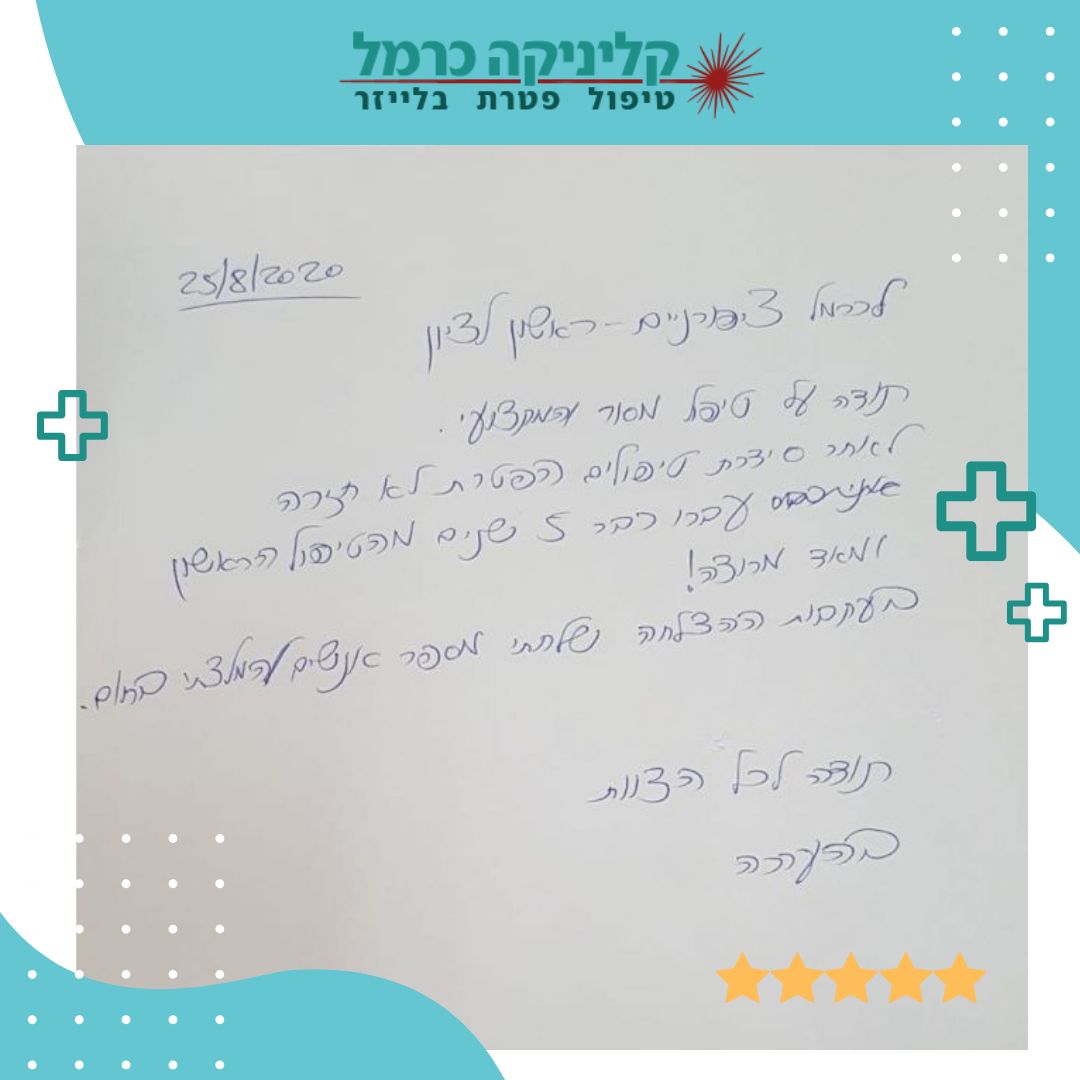 קליניקה כרמל
טיפול פטרת בלייזר
25/8/2020
לכרמל ציפורניים - ראשון לציון
תודה על טיפול מסור ומקצועי.
לאחר סידרת טיפולים הפטרת לא חזרה
עברו כבר 5 שנים מהטיפול הראשון
ומאוד מרוצה!
בעקבות ההצלחה שלחתי מספר אנשים והמלצתי בחום.
תודה לכל הצוות
בהערכה